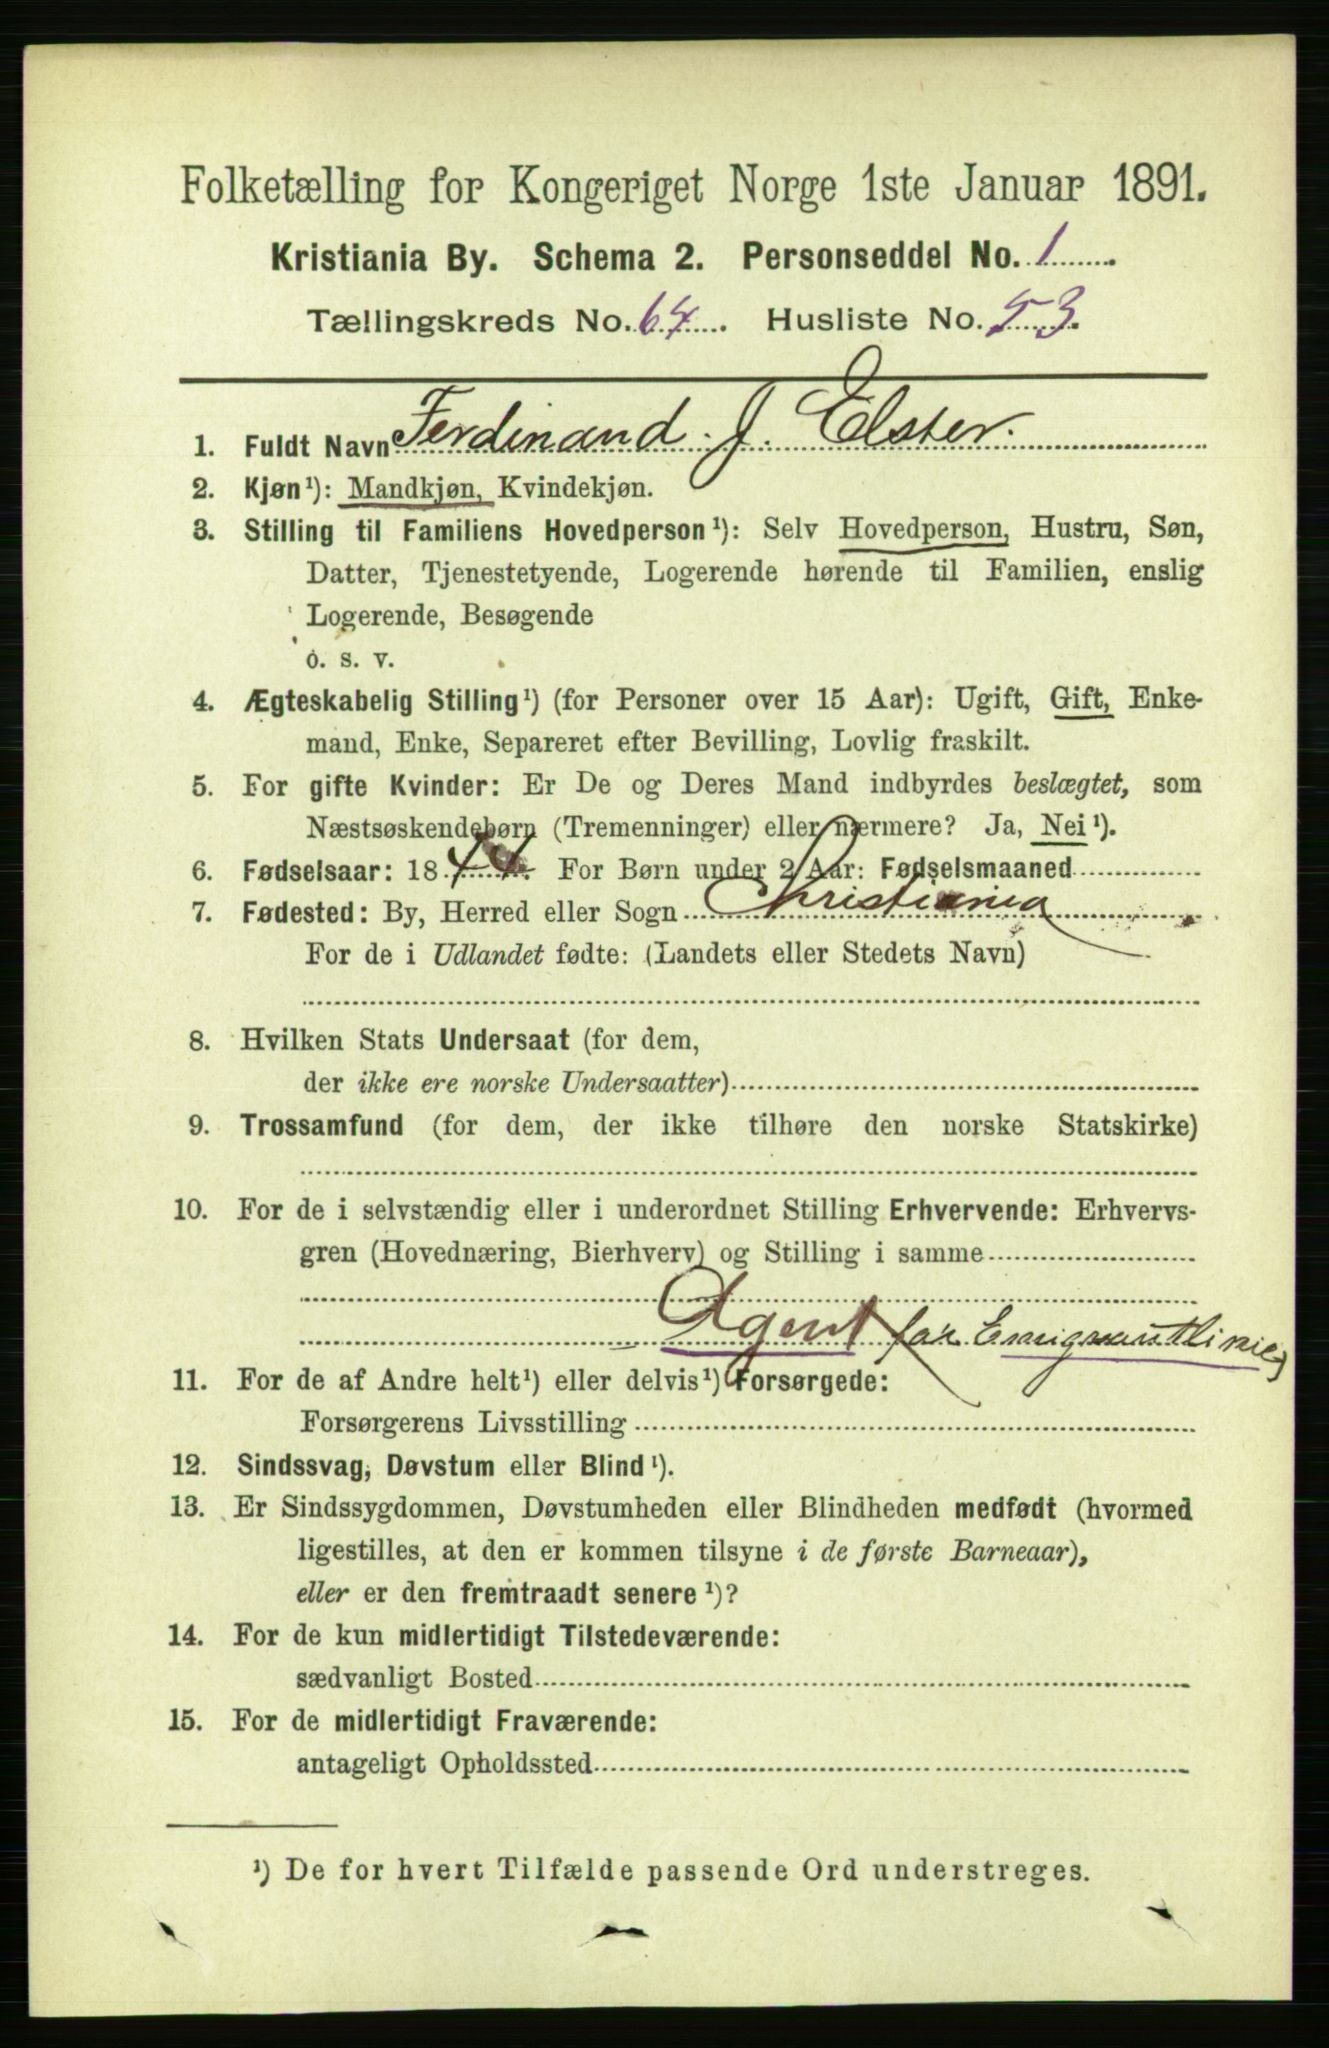 Folketælling for Kongeriget Norge 1ste Januar 1891.
Kristiania By. Schema 2. Personseddel No. 1
Tællingskreds No. 64. Husliste No. 53.
1. Fuldt Navn Ferdinand J. Elster.
2. Kjøn¹): Mandkjøn, Kvindekjøn.
3. Stilling til Familiens Hovedperson¹): Selv Hovedperson, Hustru, Søn,
Datter, Tjenestetyende, Logerende hørende til Familien, enslig
Logerende, Besøgende
o. s. v.
4. Ægteskabelig Stilling¹) (for Personer over 15 Aar): Ugift, Gift, Enke-
mand, Enke, Separeret efter Bevilling, Lovlig fraskilt.
5. For gifte Kvinder: Er De og Deres Mand indbyrdes beslægtet, som
Næstsøskendebørn (Tremenninger) eller nærmere? Ja, Nei¹).
6. Fødselsaar: 1844. For Børn under 2 Aar: Fødselsmaaned
7. Fødested: By, Herred eller Sogn Christiania
For de i Udlandet fødte: (Landets eller Stedets Navn)
8. Hvilken Stats Undersaat (for dem,
der ikke ere norske Undersaatter)
9. Trossamfund (for dem, der ikke tilhøre den norske Statskirke)
10. For de i selvstændig eller i underordnet Stilling Erhvervende: Erhvervs-
gren (Hovednæring, Bierhverv) og Stilling i samme
Agent for Emigrantlinie
11. For de af Andre helt¹) eller delvis¹) Forsørgede:
Forsørgerens Livsstilling
12. Sindssvag, Døvstum eller Blind¹).
13. Er Sindssygdommen, Døvstumheden eller Blindheden medfødt (hvormed
ligestilles, at den er kommen tilsyne i de første Barneaar),
eller er den fremtraadt senere¹)?
14. For de kun midlertidigt Tilstedeværende:
sædvanligt Bosted
15. For de midlertidigt Fraværende:
antageligt Opholdssted
¹) De for hvert Tilfælde passende Ord understreges.